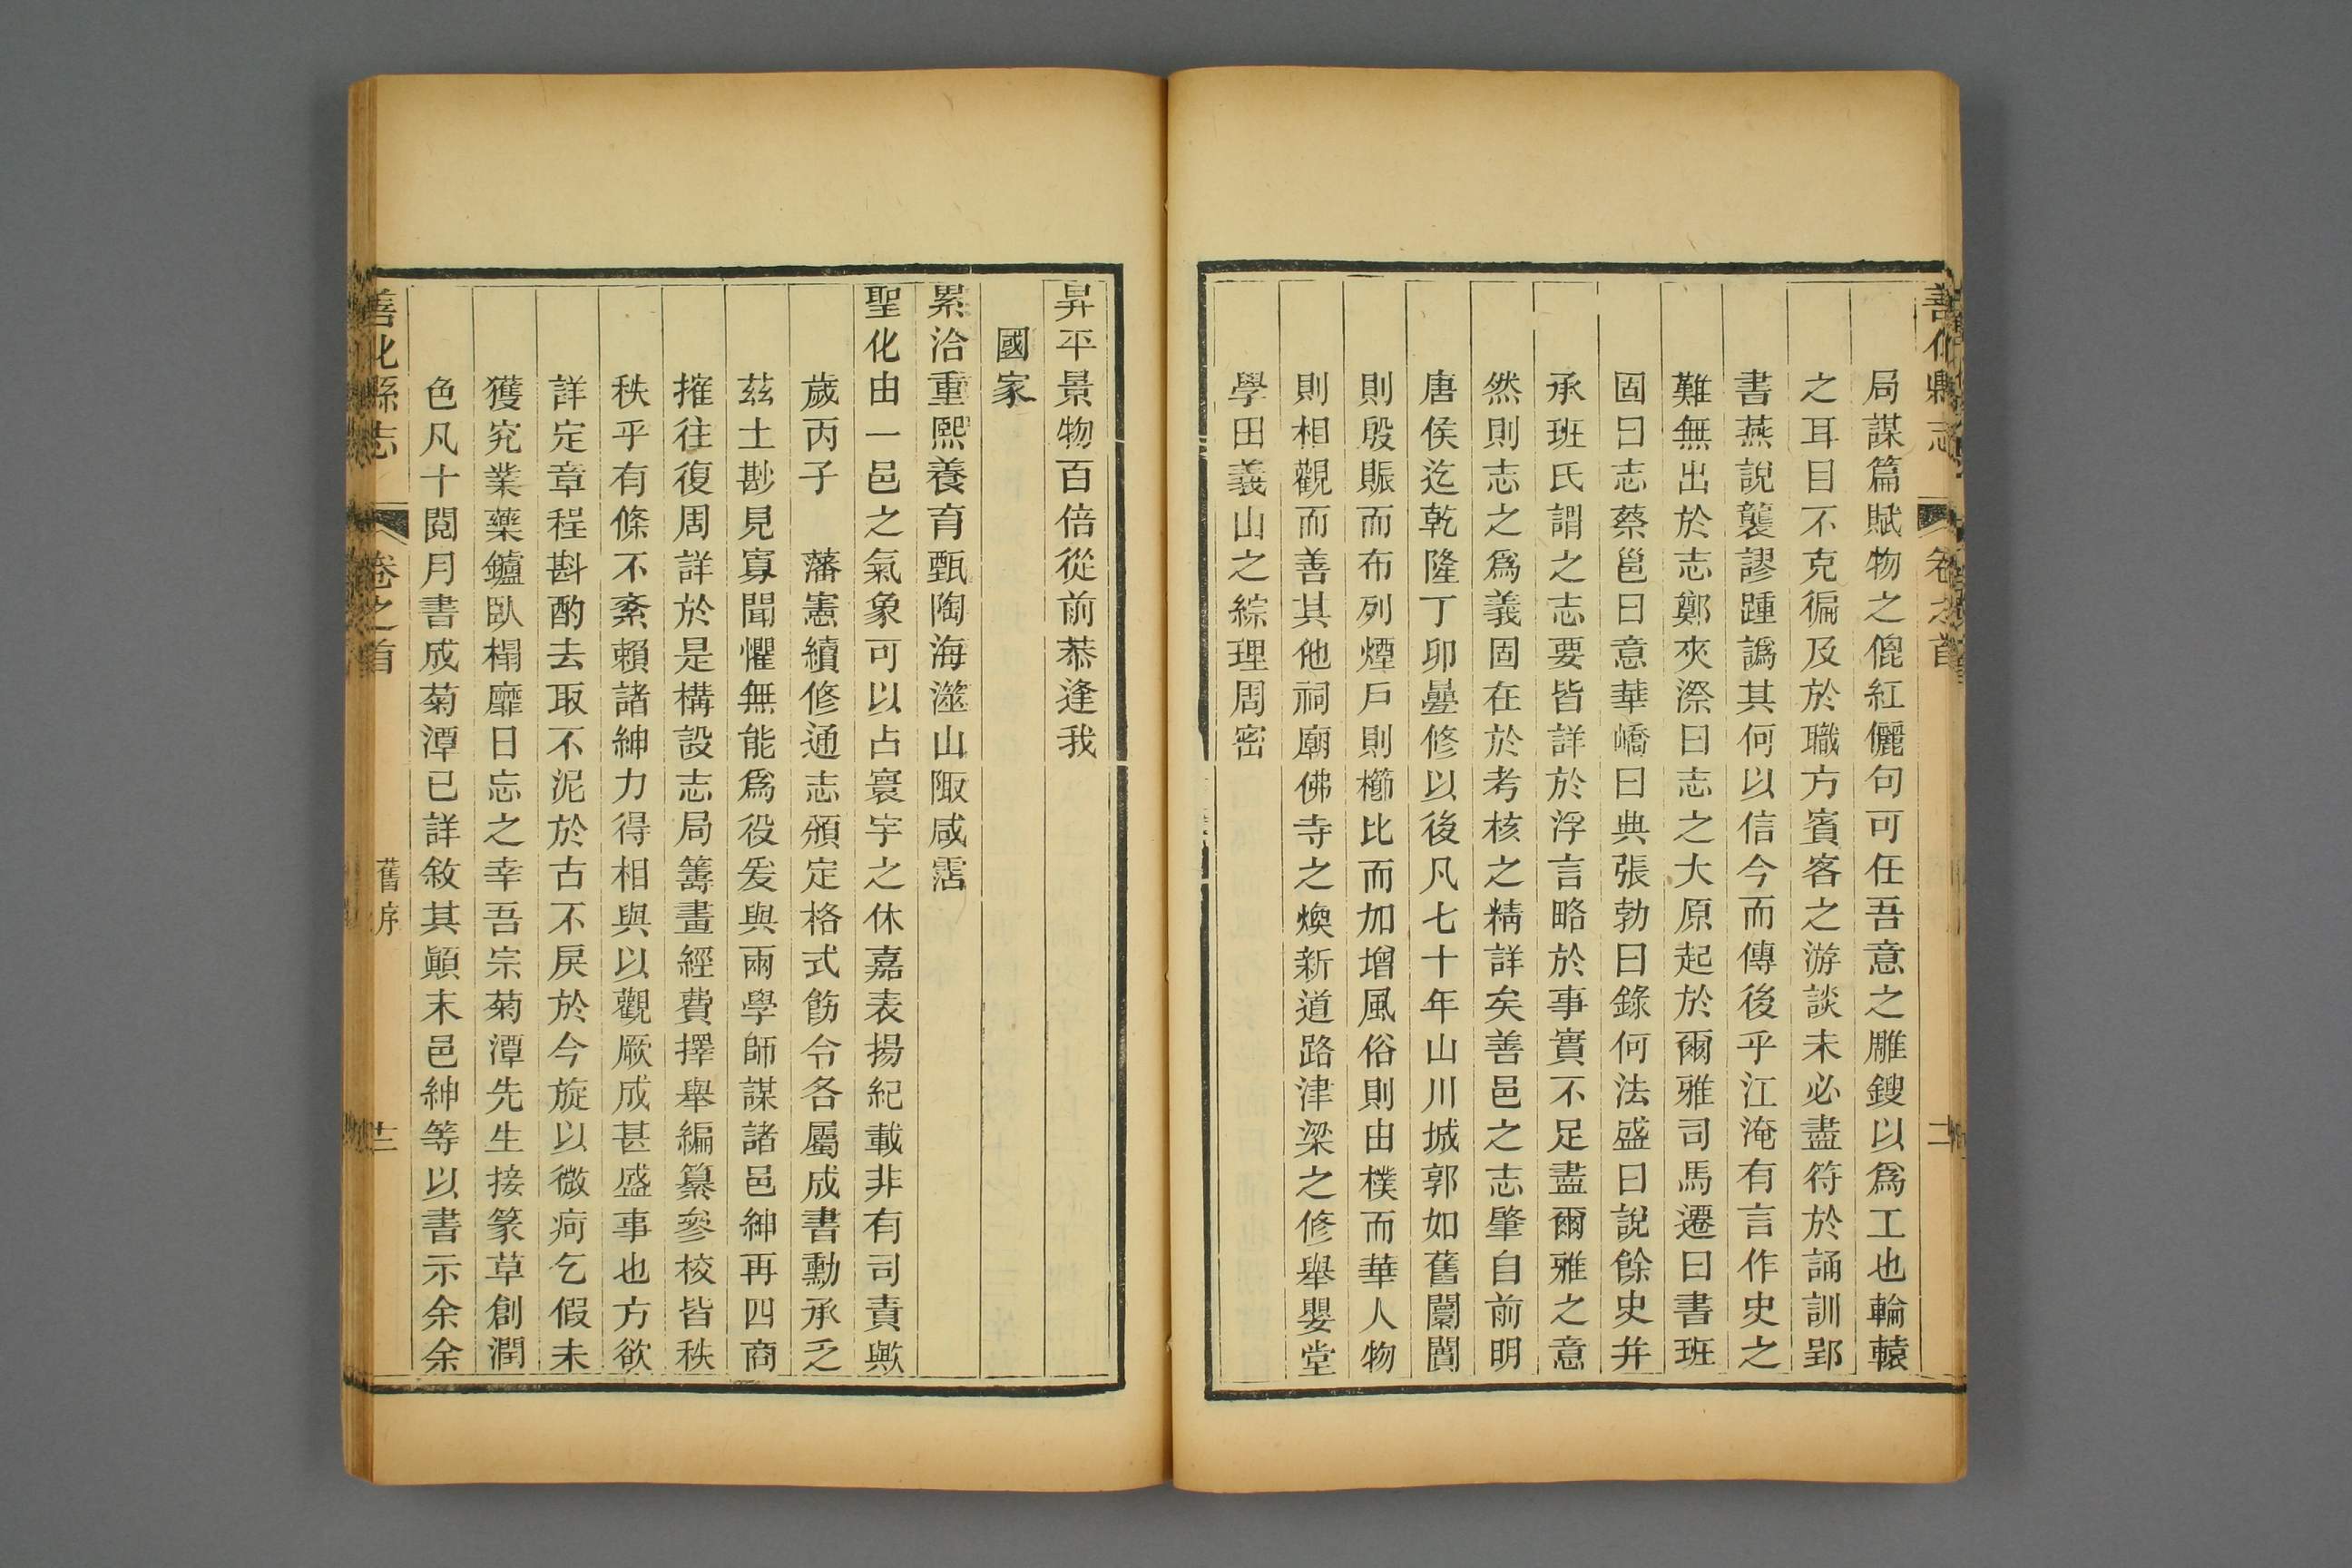 善化縣志 卷之首 二
局謀篇賦物之儷紅儷句可任吾意之雕鎪以爲工也輪轅
之耳目不克徧及於職方賓客之游談未必盡符於誦訓郢
書燕說襲謬踵譌其何以信今而傳後乎江淹有言作史之
難無出於志鄭夾漈曰志之大原起於爾雅司馬遷曰書班
固曰志蔡邕曰意華嶠曰典張勃曰錄何法盛曰說餘史并
承班氏謂之志要皆詳於浮言略於事實不足盡爾雅之意
然則志之爲義固在於考核之精詳矣善邑之志肇自前明
唐侯迄乾隆丁卯疊修以後凡七十年山川城郭如舊闤闠
則殷賑而布列煙戶則櫛比而加增風俗則由樸而華人物
則相觀而善其他祠廟佛寺之煥新道路津梁之修舉嬰堂
學田義山之綜理周密
昇平景物百倍從前恭逢我
國家
累洽重熙養育甄陶海澨山陬咸霑
聖化由一邑之氣象可以占寰宇之休嘉表揚紀載非有司責歟
歲丙子 藩憲續修通志頒定格式飭令各屬成書勳承乏
茲土尠見寡聞懼無能爲役爰與兩學師謀諸邑紳再四商
搉往復周詳於是構設志局籌畫經費擇舉編纂參校皆秩
秩乎有條不紊賴諸紳力得相與以觀厥成甚盛事也方欲
詳定章程斟酌去取不泥於古不戾於今旋以微疴乞假未
獲究業藥鑪臥榻靡日忘之幸吾宗菊潭先生接篆草創潤
色凡十閱月書成菊潭已詳敘其顚末邑紳等以書示余余
善化縣志 卷之首 舊序 廿二